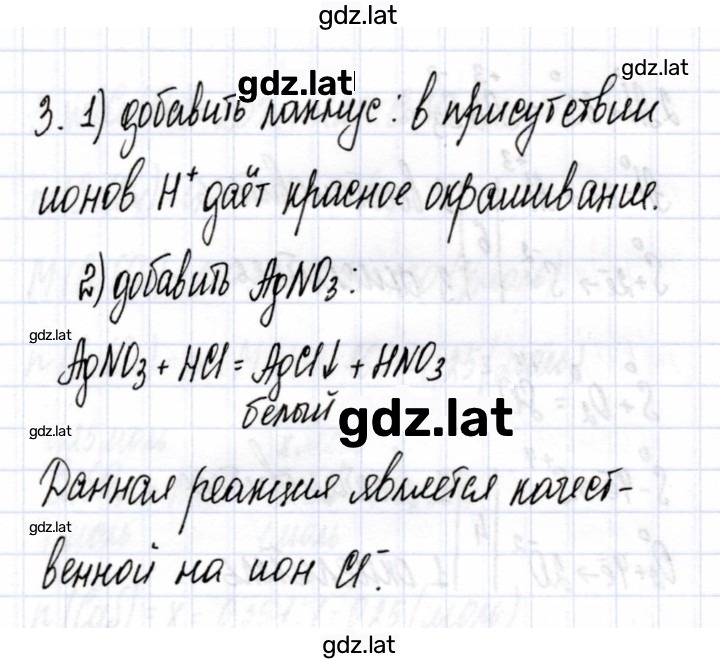 gdz.lat
gdz.lat
gdz.lat
3. 1) добавить лакмус: в присутствии
ионов H⁺ даёт красное окрашивание.
2) добавить AgNO₃:
gdz.lat
AgNO₃ + HCl = AgCl↓ + HNO₃
белый
gdz.lat
gdz.lat
Данная реакция является качест-
gdz.lat
венной на ион Cl⁻.
gdz.lat